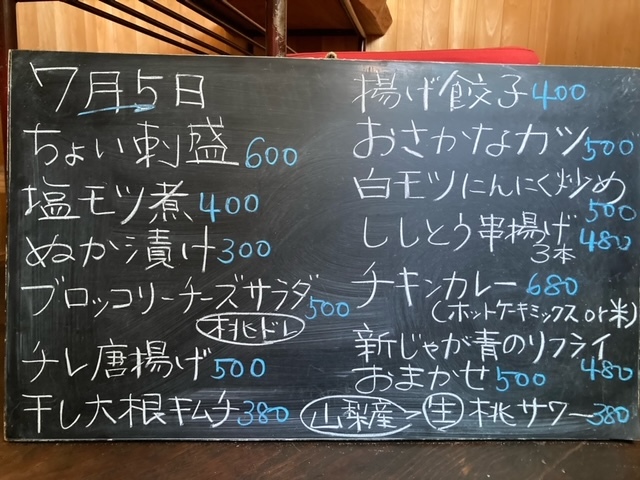 7月5日
ちょい刺盛 600
塩モツ煮 400
ぬか漬け 300
ブロッコリーチーズサラダ 500
桃ドレ
チレ唐揚げ 500
干し大根キムチ 380
揚げ餃子 400
おさかなカツ 500
白モツにんにく炒め
500
ししとう串揚げ 480
3本
チキンカレー 680
(ホットケーキミックス or 米)
新じゃが青のリフライ
480
おまかせ 500
山梨産 生 桃サワー 380